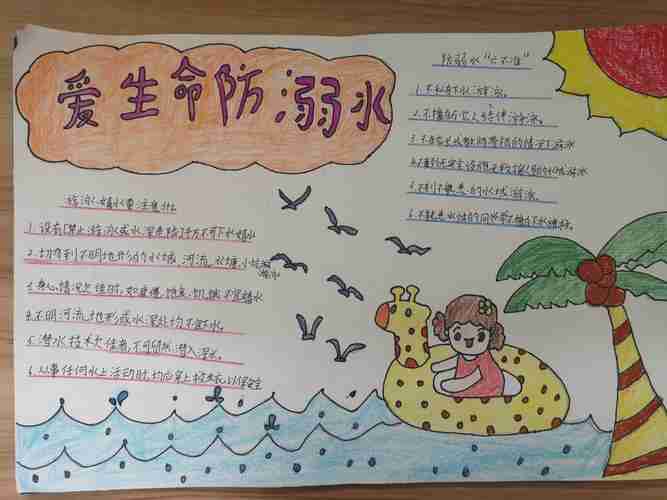 爱生命防溺水
防溺水“六不准”
1.不私自下水游泳。
2.不擅自与他人结伴游泳。
3.不在无家长或教师带领的情况下游泳
4.不到无安全设施、无救援人员的水域游泳
5.不到不熟悉的水域游泳。
6.不熟悉水性的同学不擅自下水施救。
游泳、嬉水要注意
1.设有「禁止游泳或水深危险」地方不可下水嬉水
2.切勿到不明地形的水域、河流、水塘、小坑
游泳
3.身心情况欠佳时,如疲倦、饱食、饥饿、不宜嬉水
4.不明河流地形或水深处均不跳水。
5.潜水技术欠佳者,不可贸然潜入深水。
6.从事任何水上活动时,均应穿上救生衣,以保安全